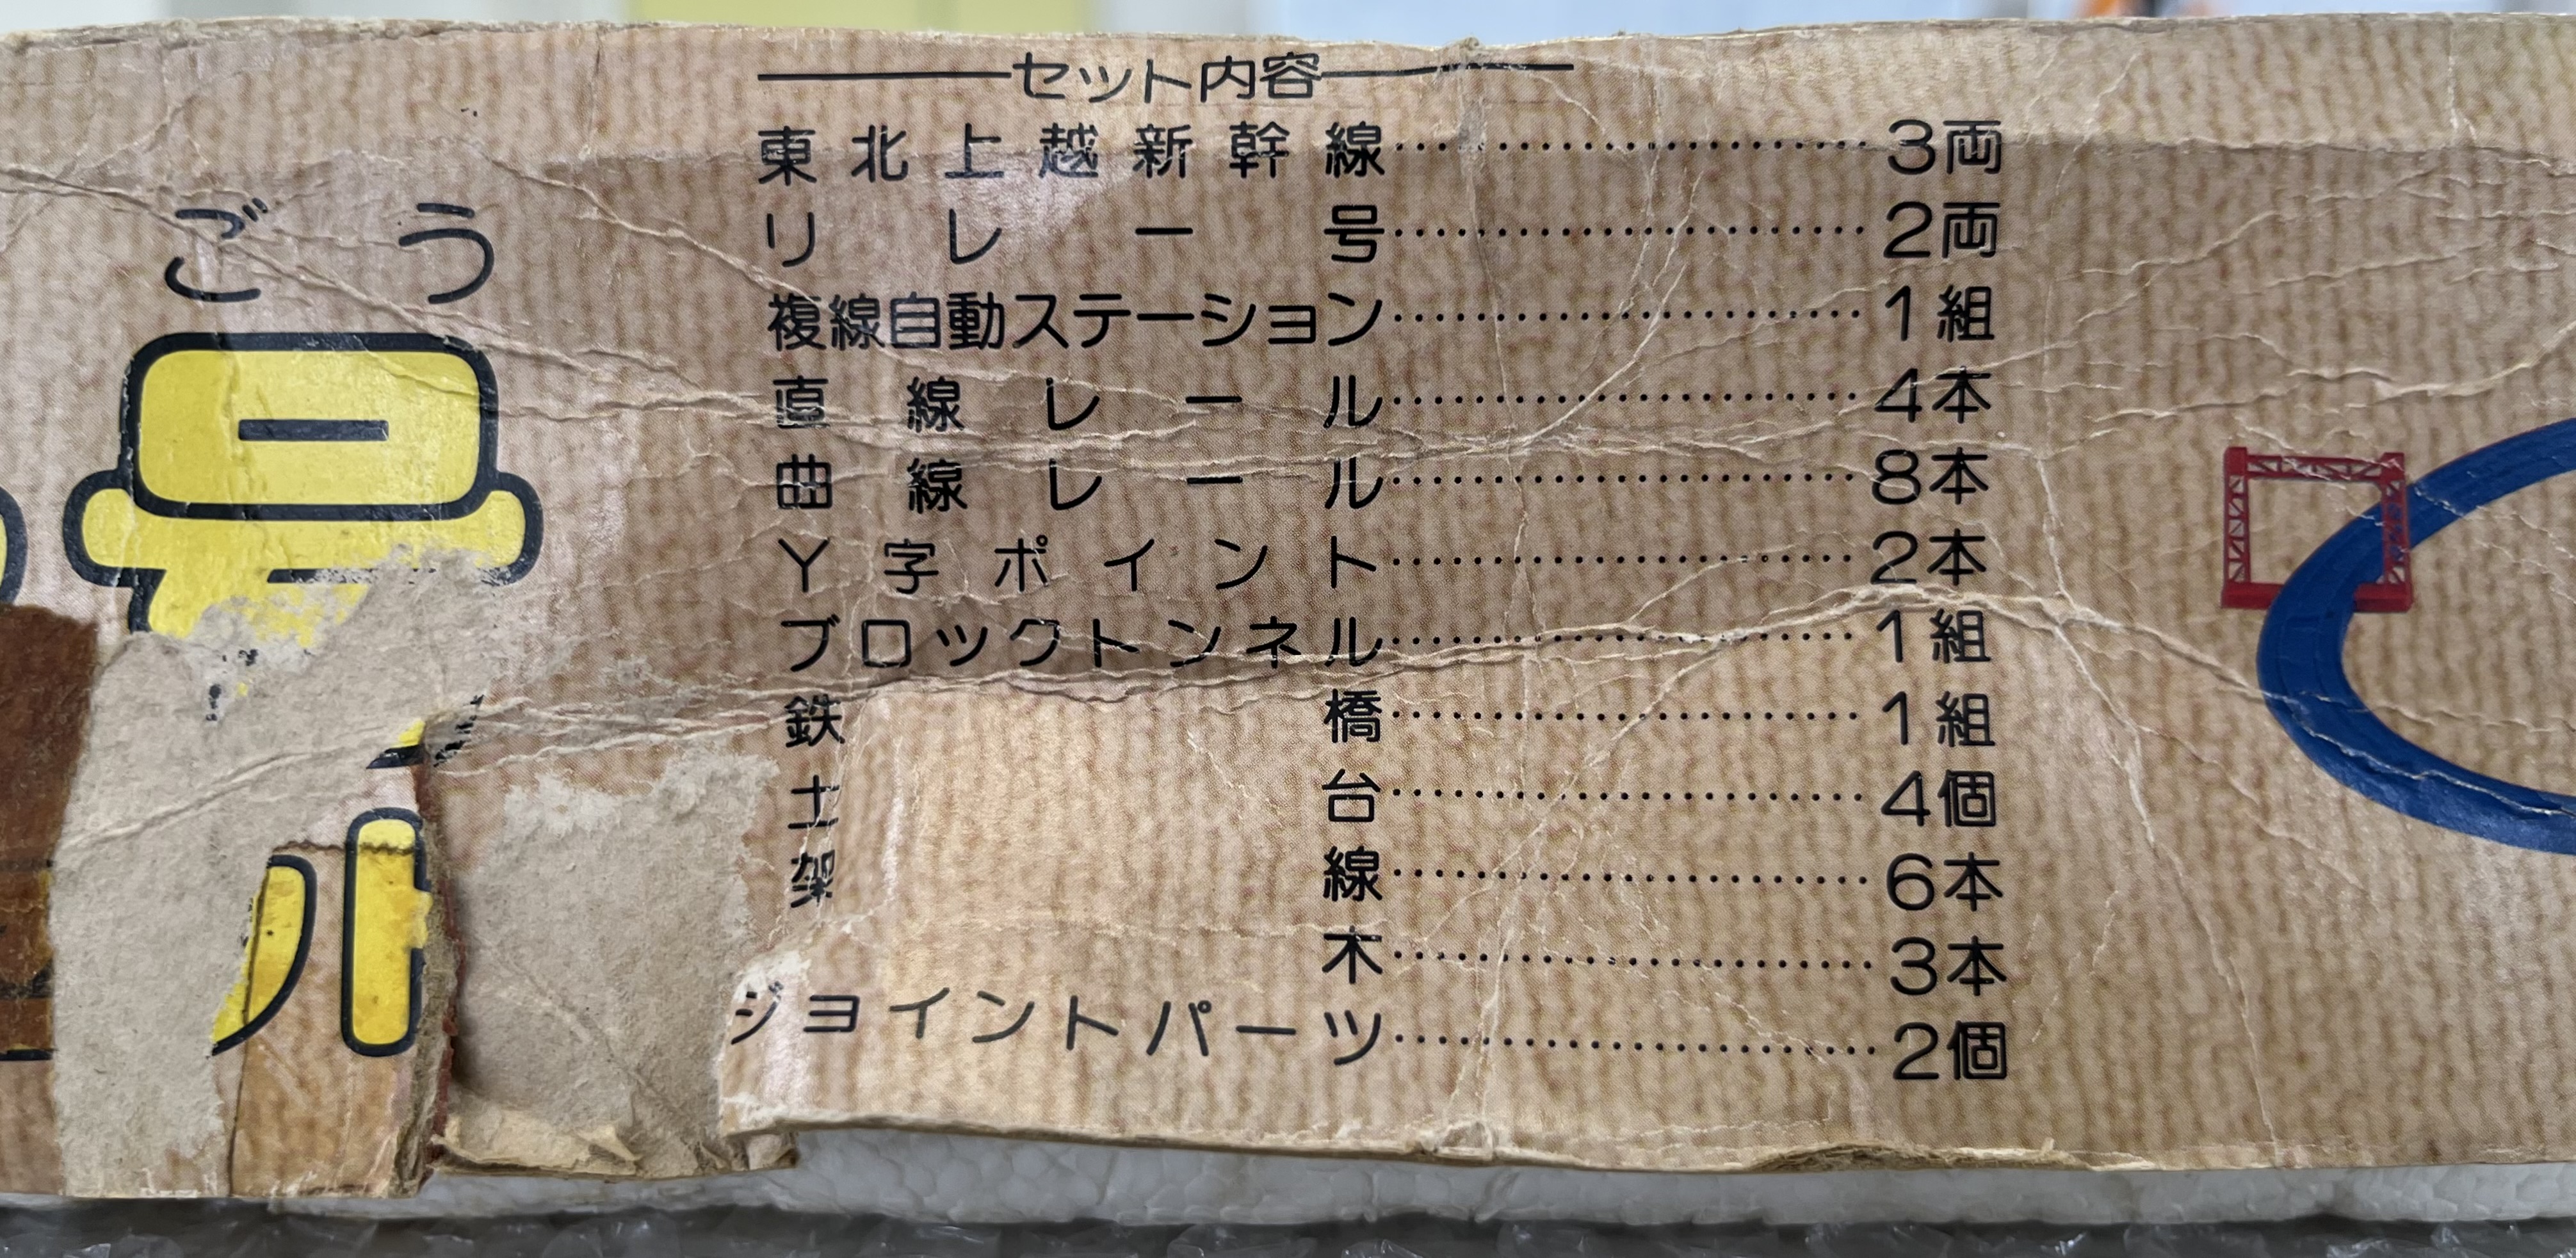 セット内容
東北上越新幹線……………………3両
リレー号……………………2両
複線自動ステーション……………………1組
直線レール……………………4本
曲線レール……………………8本
Y字ポイント……………………2本
ブロックトンネル……………………1組
鉄橋……………………1組
土台……………………4個
架線……………………6本
木……………………3本
ジョイントパーツ……………………2個
ごう
号